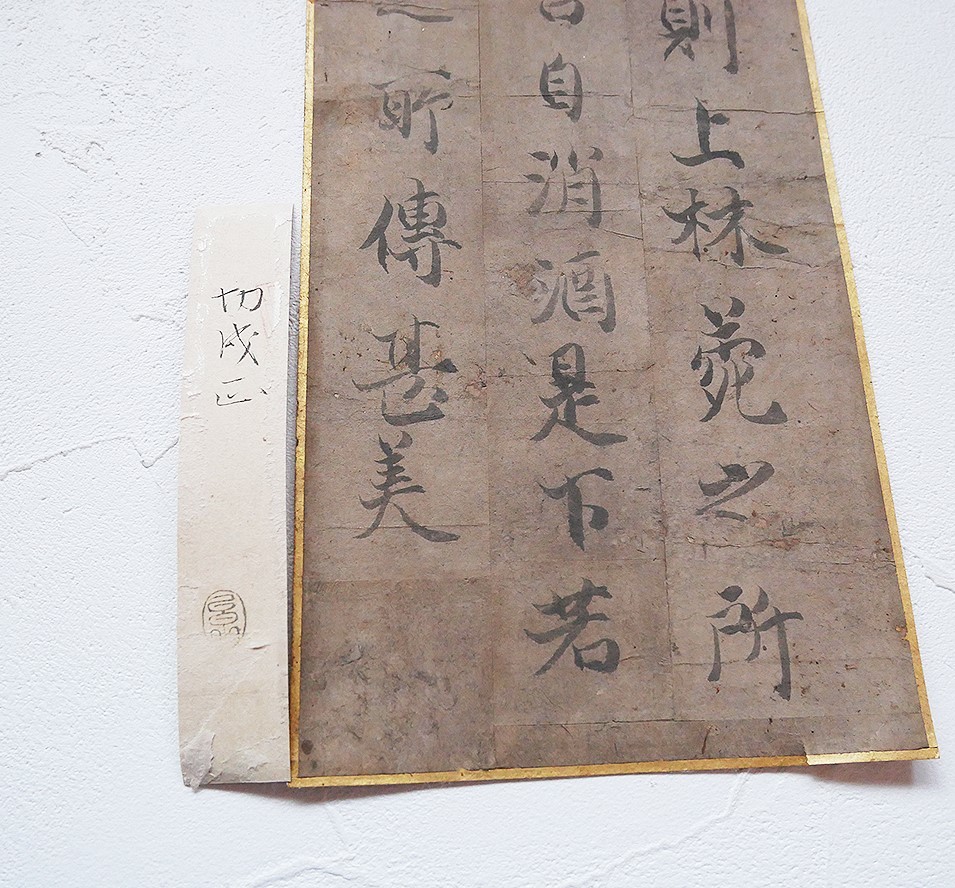 則上林菀之所
自消酒是下若
之所傳甚美
切